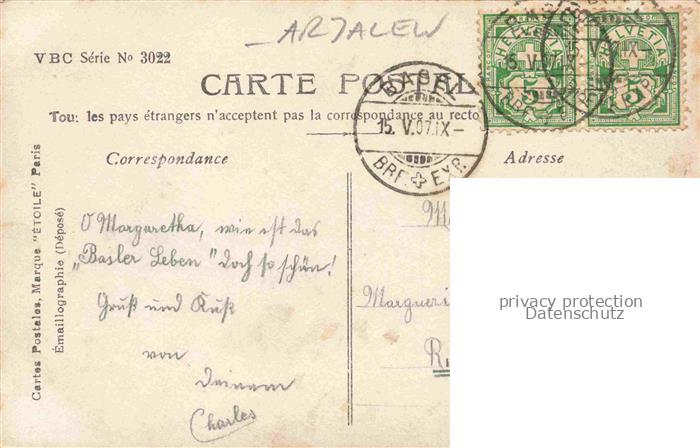 ARTALEW
VBC Série No 3022
CARTE POSTAL
Tous les pays étrangers n'acceptent pas la correspondance au recto
Correspondance
Adresse
Cartes Postales, Marque "ÉTOILE" Paris
Émaillographie (Déposé)
HELVETIA
5
HELVETIA
5
BASEL
15. V. 07. IX–
BRF. EXP.
O Margaretha, wie ist das
„Basler Leben" doch so schön!
Gruß und Kuß
von
Deinem
Charles
M
Margueri
R
privacy protection
Datenschutz